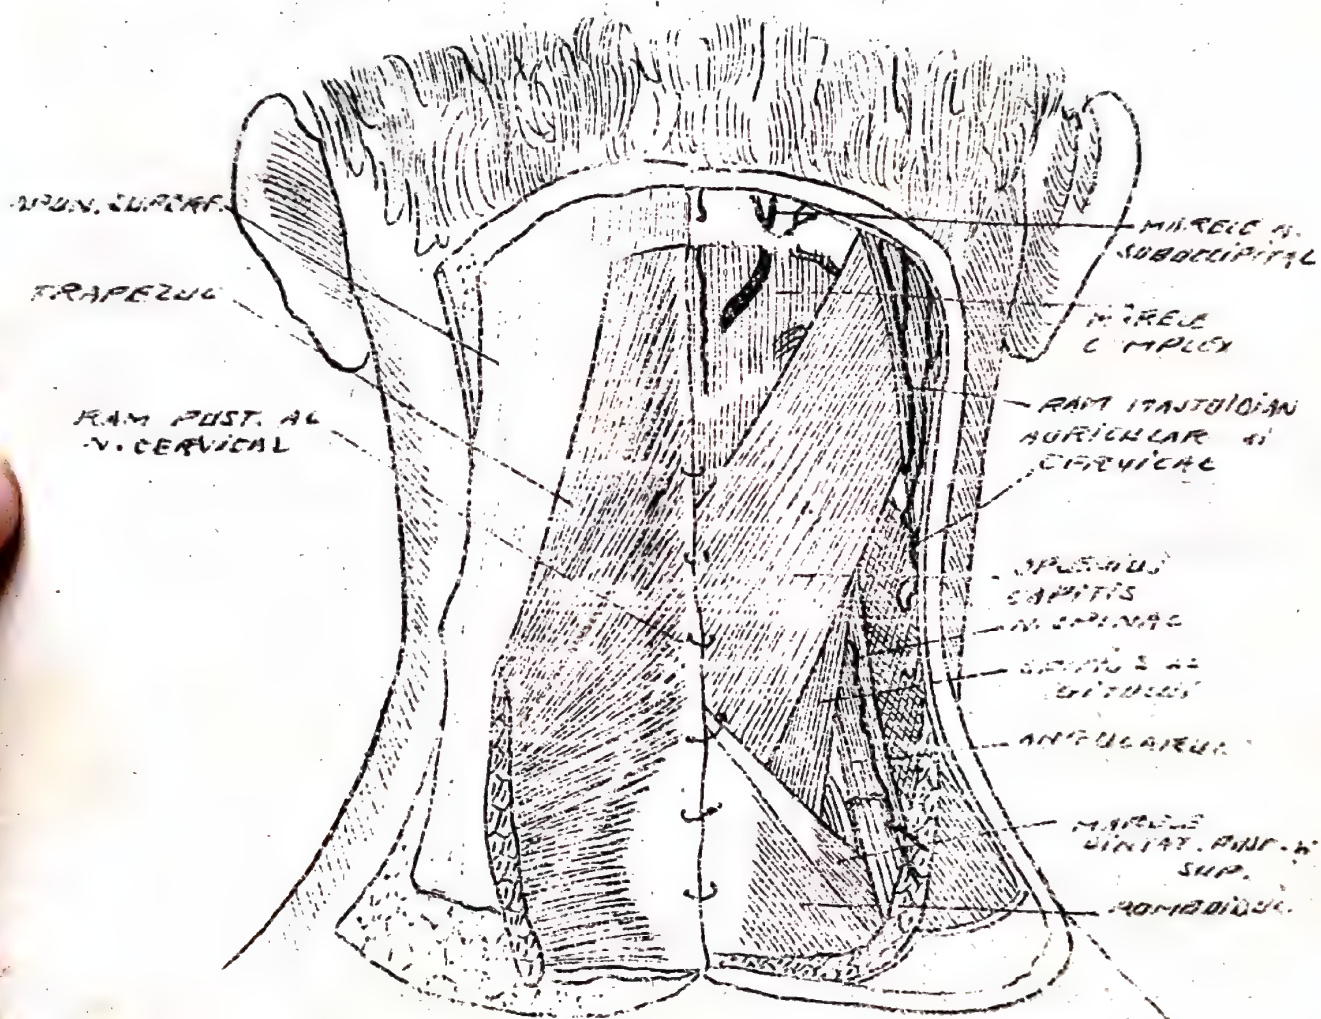 APON. SUPERF.
TRAPEZUL
RAM POST. AL
N. CERVICAL
MARELE N.
SUBOCCIPITAL
MARELE
COMPLEX
RAM MASTOIDIAN
AURICULAR si
CERVICAL
SPLENIUS
CAPITIS
N. SPINAL
ANGULARUL
MARELE
DINTAT. POST. si
SUP.
ROMBOIDUL